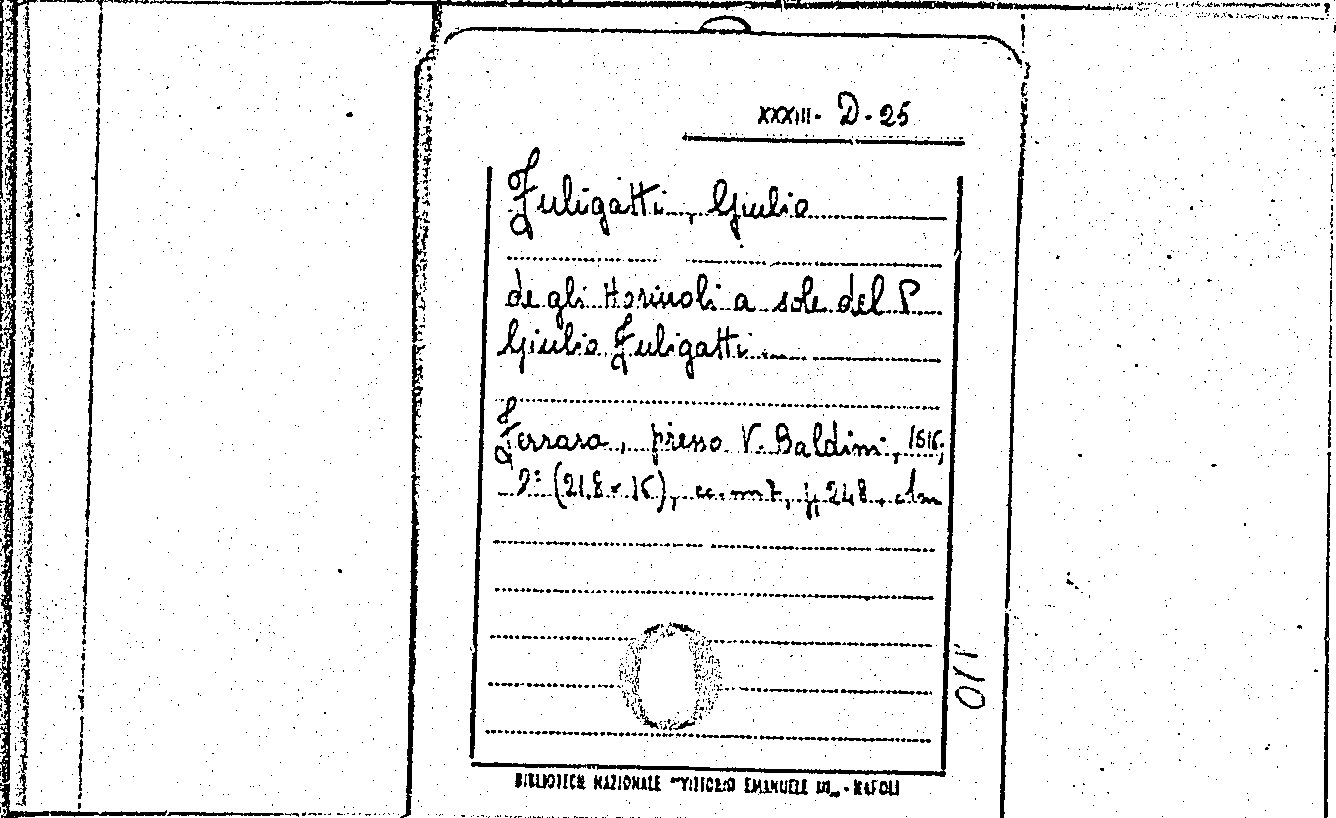 XXXIII- D - 25
Fuligatti, Giulio
degli Horiuoli a sole del P
Giulio Fuligatti
Ferrara, presso V. Baldini, 1616,
248
BIBLIOTECA NAZIONALE "VITTORIO EMANUELE III" - NAPOLI